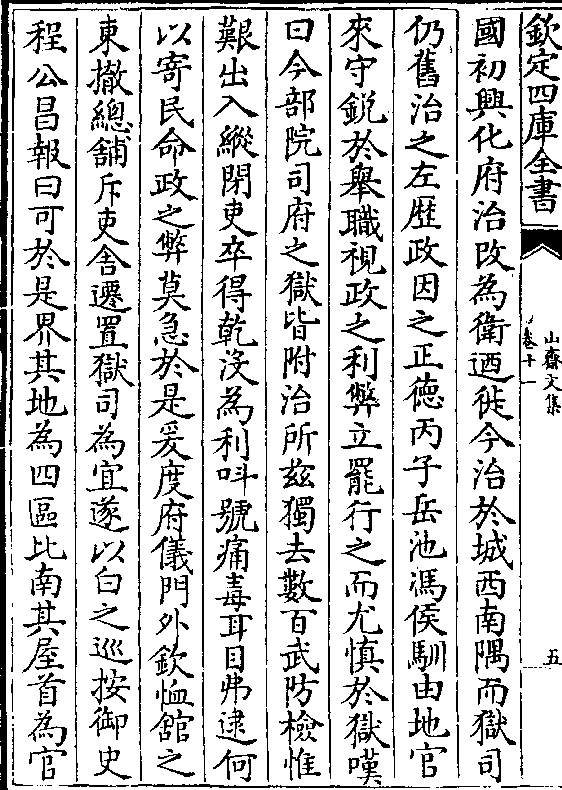 欽定四庫全書
山齋文集
卷十一
五
國初興化府治改為衛迺徙今治於城西南隅而獄司
仍舊治之左歷政因之正德丙子岳池馮侯馴由地官
來守鋭於舉職視政之利弊立罷行之而尤慎於獄嘆
曰今部院司府之獄皆附治所兹獨去數百武防檢惟
艱出入縱閉吏卒得乾没為利呌號痛毒耳目弗逮何
以寄民命政之弊莫急於是爰度府儀門外欽恤舘之
東撤總舖斥吏舍遷置獄司為宜遂以白之巡按御史
程公昌報曰可於是界其地為四區比南其屋首為官